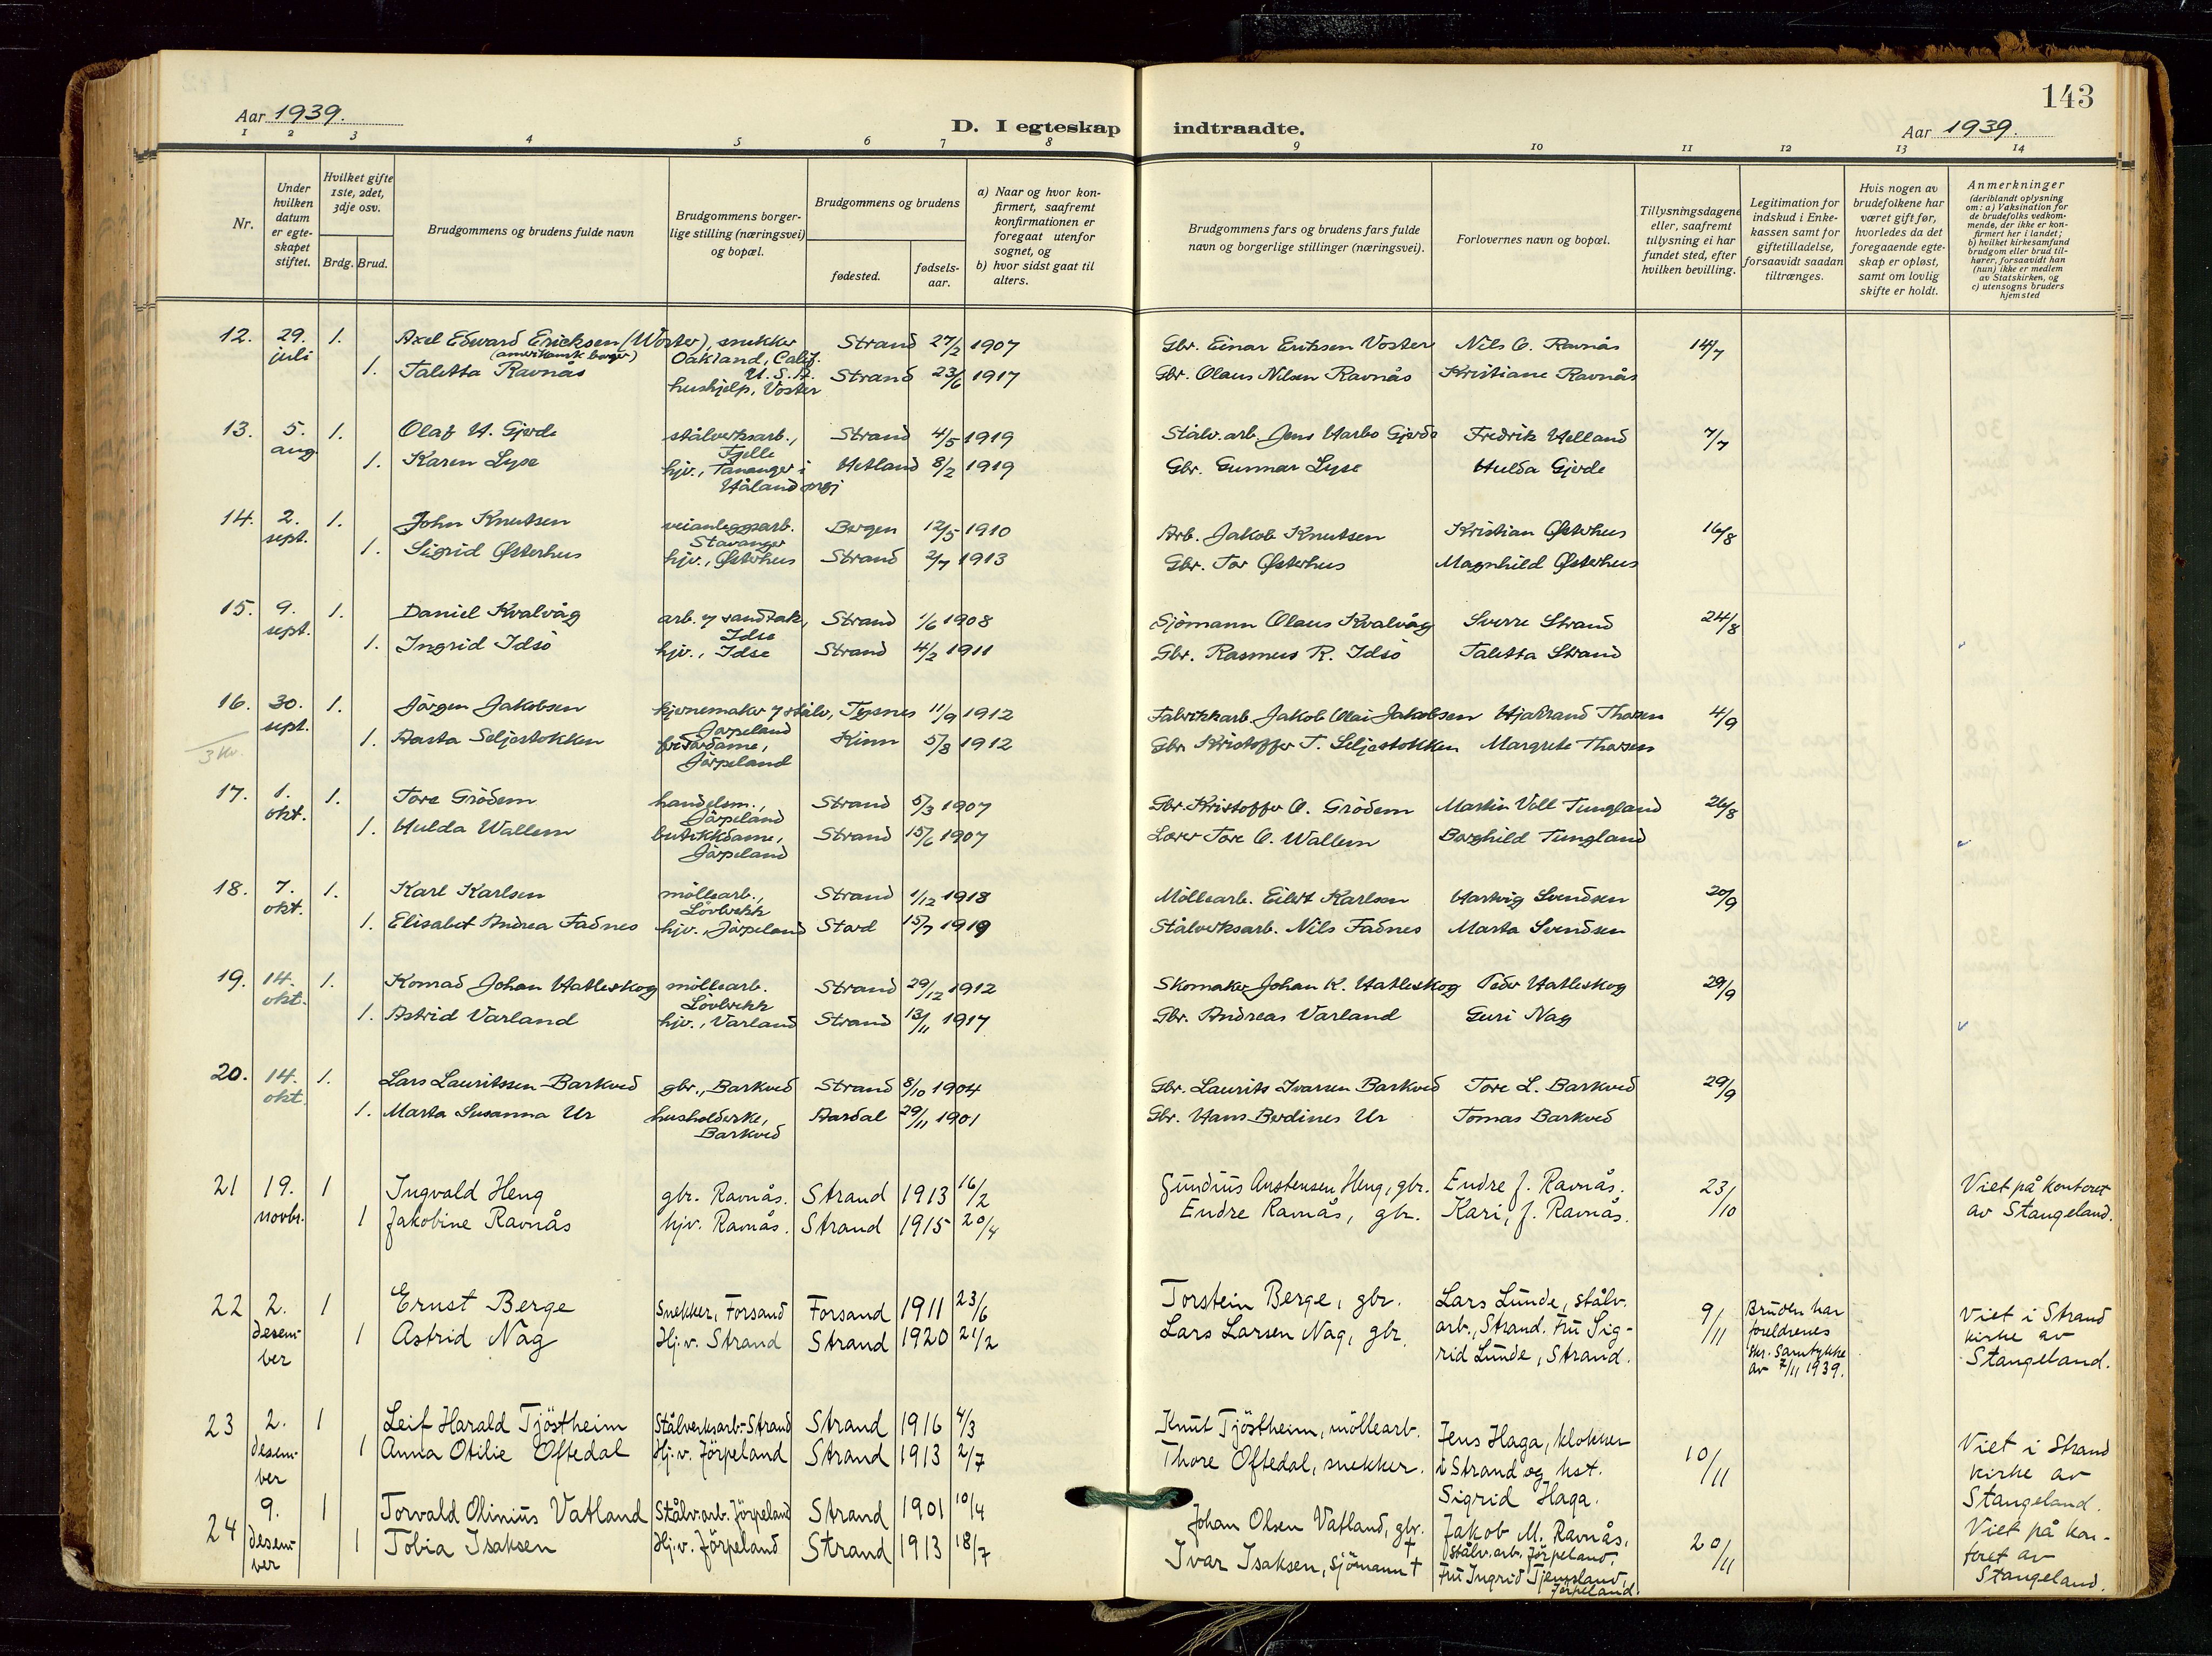 143
Aar 1939.
D. I egteskap indtraadte.
Aar 1939.
1 2 3 4 5 6 7 8 9 10 11 12 13 14
Nr.
Under hvilken datum er egteskapet stiftet.
Hvilket gifte 1ste, 2det, 3dje osv.
Brdg. Brud.
Brudgommens og brudens fulde navn
Brudgommens borgerlige stilling (næringsvei) og bopæl.
Brudgommens og brudens
fødested.
fødselsaar.
a) Naar og hvor konfirmert, saafremt konfirmationen er foregaat utenfor sognet, og
b) hvor sidst gaat til alters.
Brudgommens fars og brudens fars fulde navn og borgerlige stillinger (næringsvei).
Forlovernes navn og bopæl.
Tillysningsdagene eller, saafremt tillysning ei har fundet sted, efter hvilken bevilling.
Legitimation for indskud i Enkekassen samt for giftetilladelse, forsaavidt saadan tiltrænges.
Hvis nogen av brudefolkene har været gift før, hvorledes da det foregaaende egteskap er opløst, samt om lovlig skifte er holdt.
Anmerkninger (deriblandt oplysning om: a) Vaksination for de brudefolks vedkommende, der ikke er konfirmert her i landet; b) hvilket kirkesamfund brudgom eller brud tilhører, forsaavidt han (hun) ikke er medlem av Statskirken, og c) utensogns bruders hjemsted
12. 29. juli 1. Axel Edward Ericksen (Voster), snekker Strand 27/2 1907 Gbr. Einar Eriksen Voster Nils O. Ravnås 14/7
(amerikansk borger) Oakland, Calif. U.S.A.
1. Taletta Ravnås hushjelp, Voster Strand 23/6 1917 Gbr. Olaus Nilsen Ravnås Kristiane Ravnås
13. 5. aug. 1. Olaf H. Gjerde stålverksarb., Fjelle Strand 4/5 1919 Stålv.arb. Jens Harbo Gjerde Fredrik Helland 7/7
1. Karen Lyse hjv., Tananger i Håland prgj Hetland 8/2 1919 Gbr. Gunnar Lyse Hulda Gjerde
14. 2. sept. 1. John Knutsen veianleggsarb. Stavanger Bergen 12/5 1910 Arb. Jakob Knutsen Kristian Østerhus 16/8
1. Sigrid Østerhus hjv., Østerhus Strand 2/7 1913 Gbr. Tor Østerhus Magnhild Østerhus
15. 9. sept. 1. Daniel Kvalvåg arb. v sandtak, Idse Strand 1/6 1908 Sjömann Olaus Kvalvåg Sverre Strand 24/8
1. Ingrid Idsö hjv., Idse Strand 4/2 1911 Gbr. Rasmus R. Idsö Taletta Strand
16. 30. sept. 1. Jörgen Jakobsen kjernemaker v stålv, Jörpeland Tysnes 11/9 1912 Fabrikkarb. Jakob Olai Jakobsen Hjalrand Thorsen 4/9
3 kv.
1. Aasta Seljestokken frisördame, Jörpeland Kinn 5/8 1912 Gbr. Kristoffer T. Seljestokken Margrete Thorsen
17. 1. okt. 1. Tore Grödem handelsm., Jörpeland Strand 5/3 1907 Gbr. Kristoffer O. Grödem Martin Voll Tungland 26/8
1. Hulda Wallem butikkdame, Jörpeland Strand 15/6 1907 Lærer Tore O. Wallem Borghild Tungland
18. 7. okt. 1. Karl Karlsen möllearb., Lövbrekk Strand 1/12 1918 Möllearb. Eilert Karlsen Hartvig Svendsen 20/9
1. Elisabet Andrea Fadnes hjv., Jörpeland Stord 15/7 1919 Stålverksarb. Nils Fadnes Marta Svendsen
19. 14. okt. 1. Konrad Johan Hatleskog möllearb. Lövbrekk Strand 29/12 1912 Skomaker Johan K. Hatleskog Peder Hatleskog 29/9
1. Astrid Varland hjv., Varland Strand 13/11 1917 Gbr. Andreas Varland Guri Nag
20. 14. okt. 1. Lars Lauritssen Barkved gbr., Barkved Strand 8/10 1904 Gbr. Laurits Ivarsen Barkved Tore L. Barkved 29/9
1. Marta Susanna Ur husholderske, Barkved Aardal 29/11 1901 Gbr. Hans Berdines Ur Tomas Barkved
21 19. novbr. 1 Ingvald Heng gbr. Ravnås. Strand 1913 16/2 Gundius Anstensen Heng, gbr. Endre J. Ravnås. 23/10 Viet på kontoret av Stangeland.
1 Jakobine Ravnås hjv. Ravnås. Strand 1915 20/4 Endre Ravnås, gbr. Kari, J. Ravnås.
22 2. desember 1 Ernst Berge Snekker, Forsand Forsand 1911 23/6 Torstein Berge, gbr. Lars Lunde, stålv. arb., Strand. Fru Sigrid Lunde, Strand. 9/11 Bruden har foreldrenes skr. samtykke av 7/11 1939. Viet i Strand kirke av Stangeland.
1 Astrid Nag Hj.v. Strand Strand 1920 21/2 Lars Larsen Nag, gbr.
23 2. desember 1 Leif Harald Tjöstheim Stålverksarb.-Strand Strand 1916 4/3 Knut Tjöstheim, möllearb. Jens Haga, klokker i Strand og hst. Sigrid Haga. 10/11 Viet i Strand kirke av Stangeland.
1 Anna Otilie Oftedal Hj.v. Jörpeland Strand 1913 2/7 Thore Oftedal, snekker.
24 9. desember 1 Torvald Olinius Vatland Stålv.arb. Jörpeland Strand 1901 10/4 Johan Olsen Vatland, gbr. † Jakob M. Ravnås, stålv.arb. Jörpeland. Fru Ingrid Tjensland, Jörpeland. 20/11 Viet på kontoret av Stangeland.
1 Tobia Isaksen Hj.v. Jörpeland Strand 1913 18/7 Ivar Isaksen, sjömann †